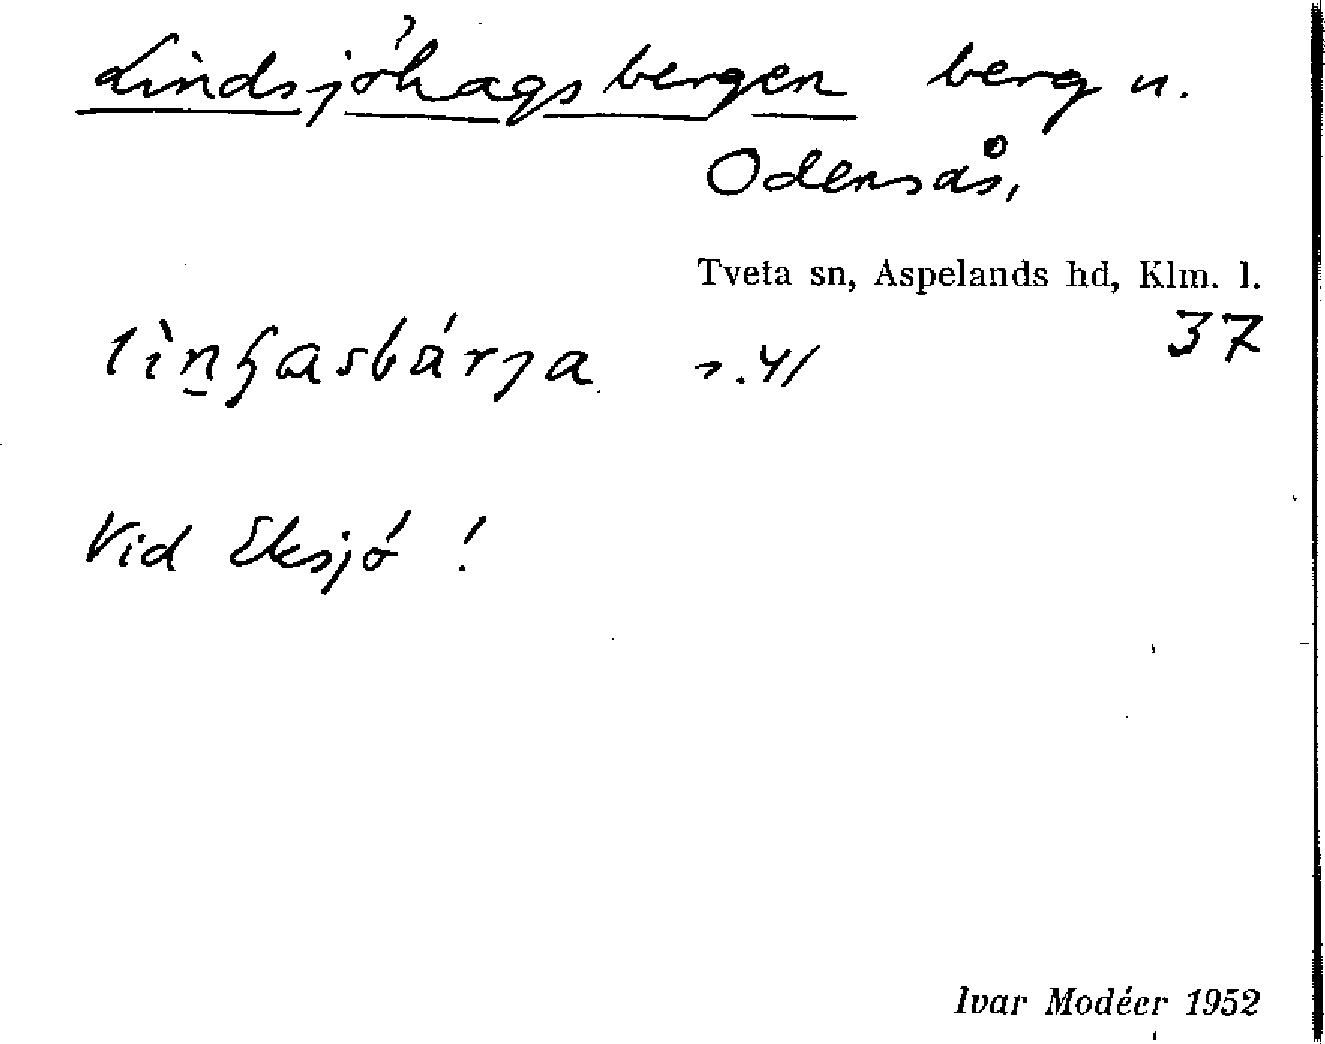 Lindsjöhagsbergen berg n.
Odensås,
Tveta sn, Aspelands hd, Klm. l.
37
Vid Eksjö !
Ivar Modéer 1952